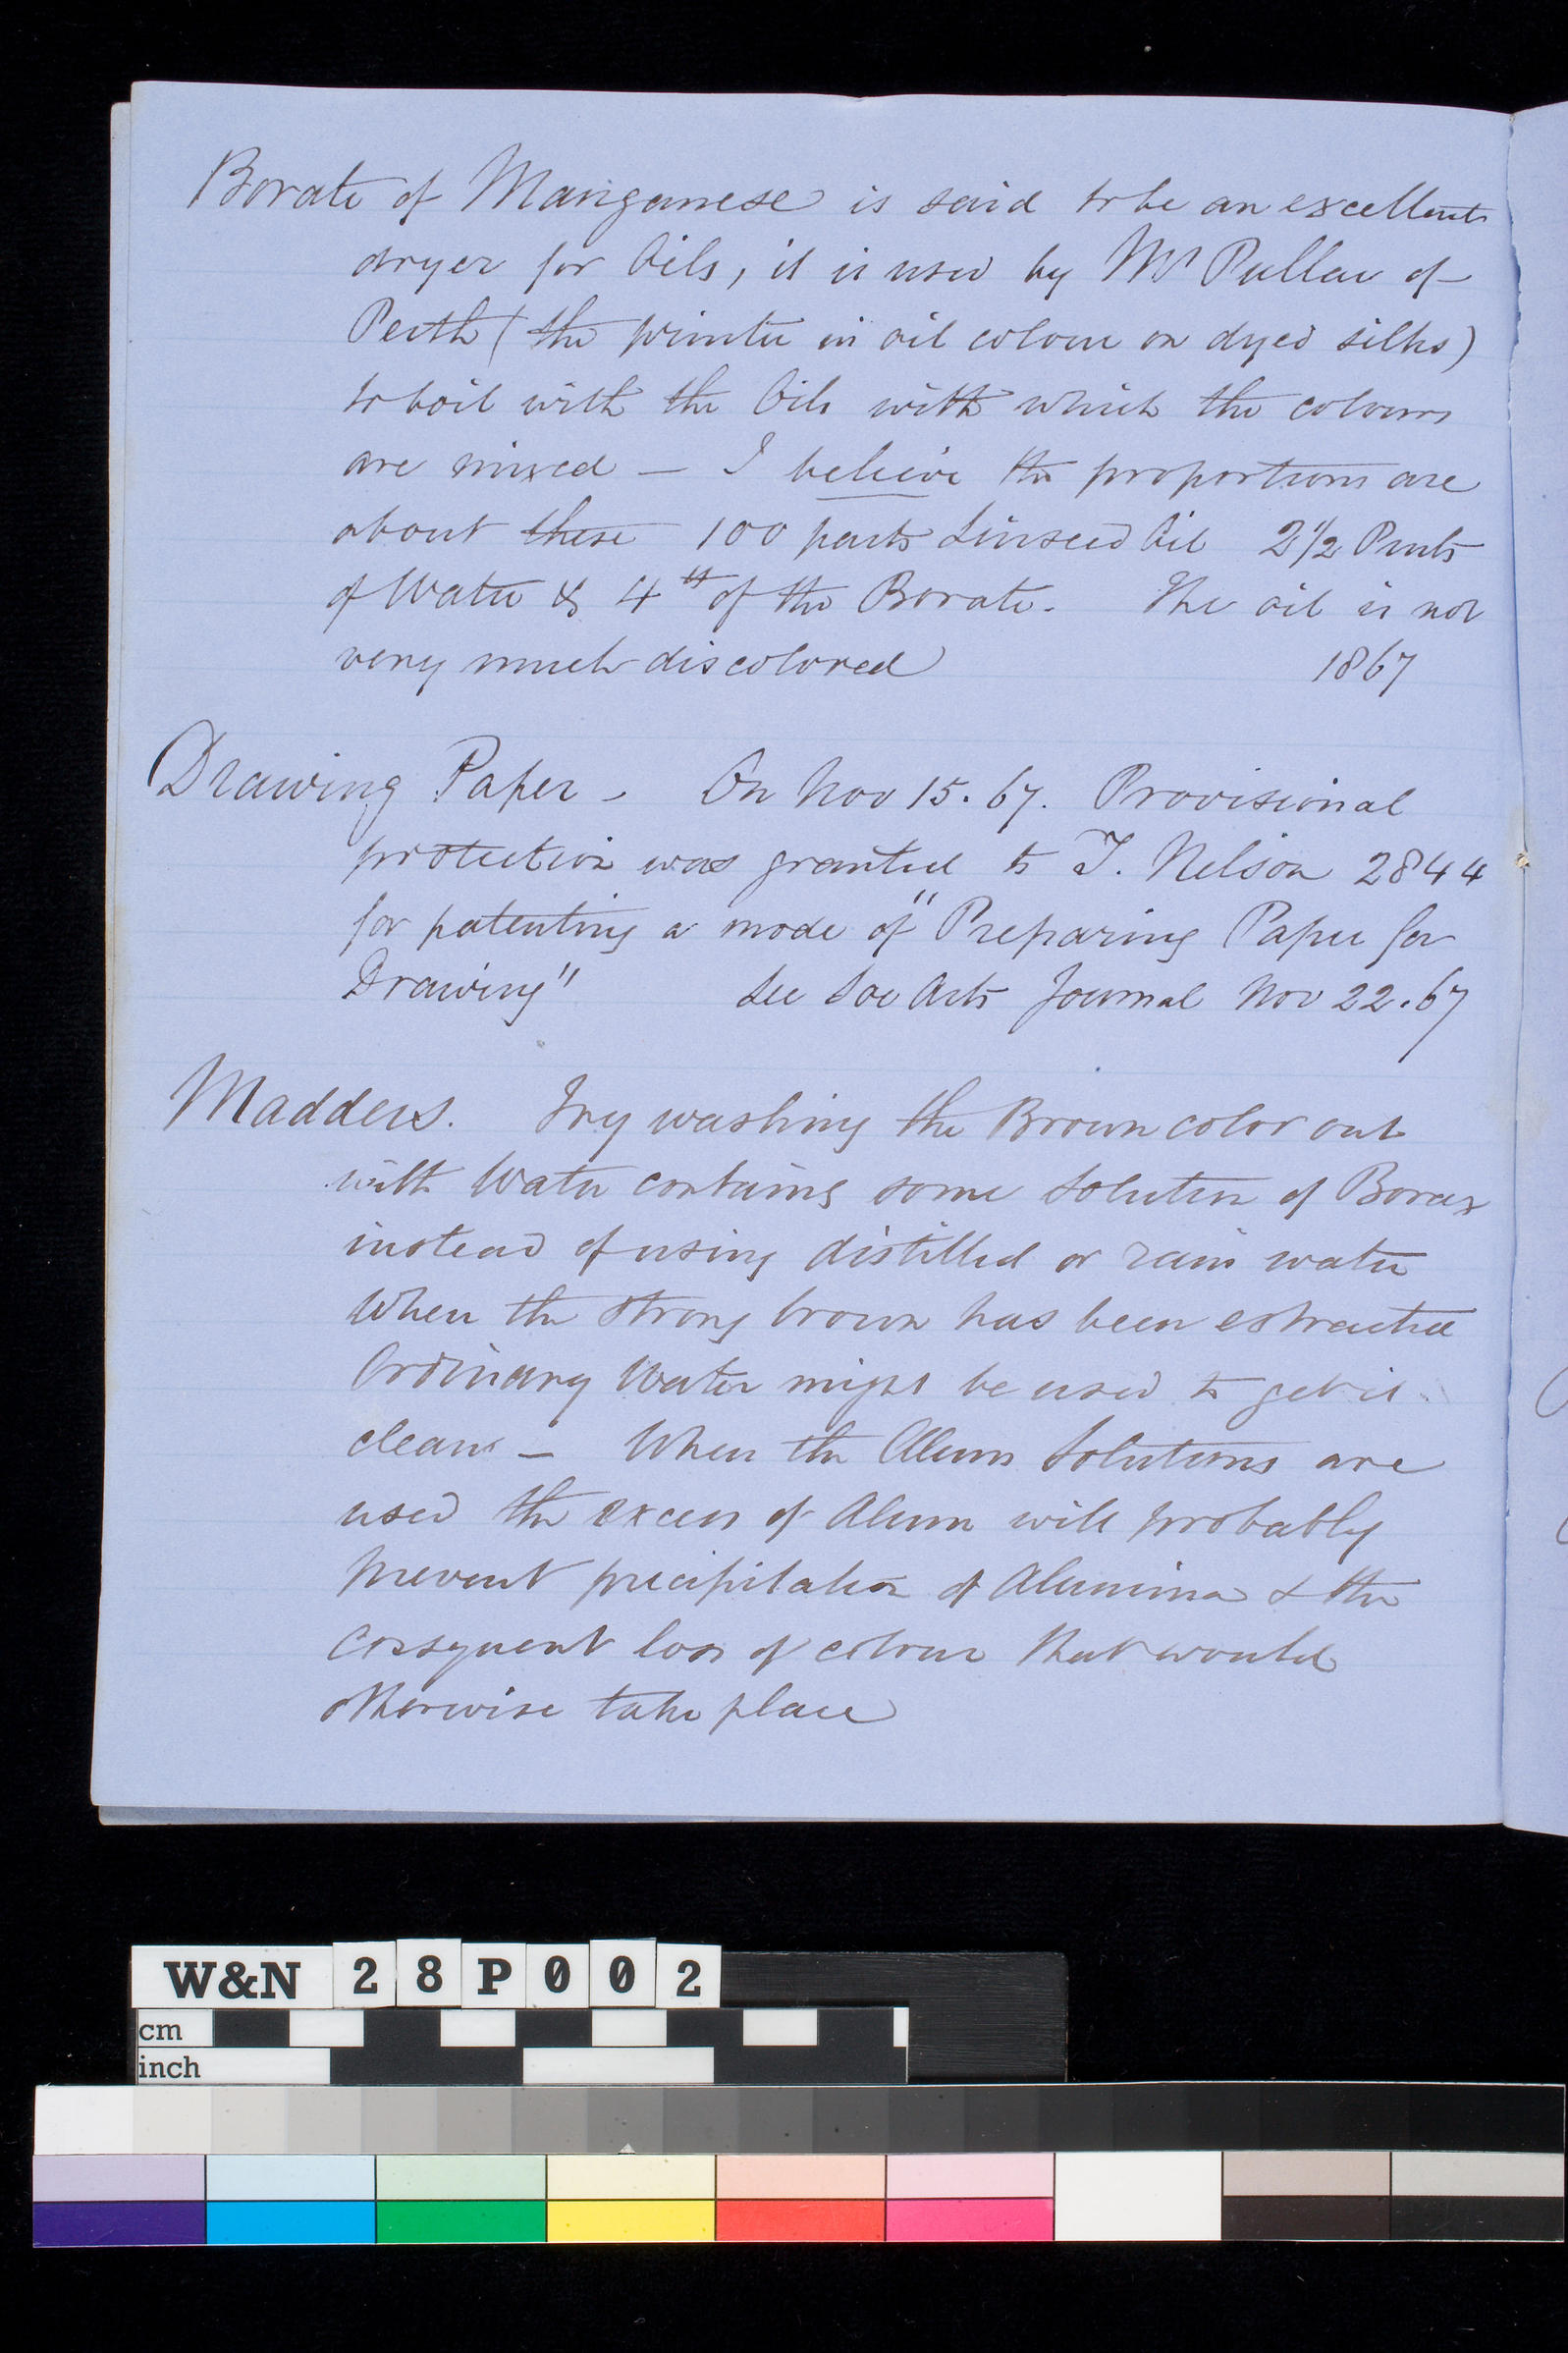 Borate of Manganese is said to be an excellent
dryer for Oils, it is used by Mr Pullar of
Perth (the printer in oil colour on dyed silks)
to boil with the Oils with which the colours
are mixed — I believe the proportions are
about these 100 parts Linseed Oil 2 1/2 Parts
of Water & 4 " of the Borate. The oil is not
very much discolored 1867
Drawing Paper - On Nov 15. 67. Provisional
protection was granted to T. Nelson 2844
for patenting a mode of "Preparing Paper for
Drawing" See Soc Arts Journal Nov 22.67
Madders. Try washing the Brown color out
with Water containing some Solution of Borax
instead of using distilled or rain water
When the strong brown has been extracted
Ordinary Water might be used to get it
clean — When the Alum Solutions are
used the excess of Alum will probably
prevent precipitation of Alumina & the
consequent loss of colour that would
otherwise take place
W&N 28P002
cm
inch